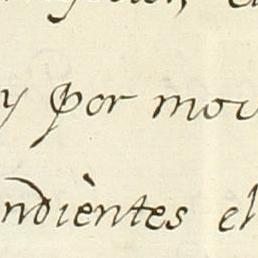 y por mou
ndièntes el